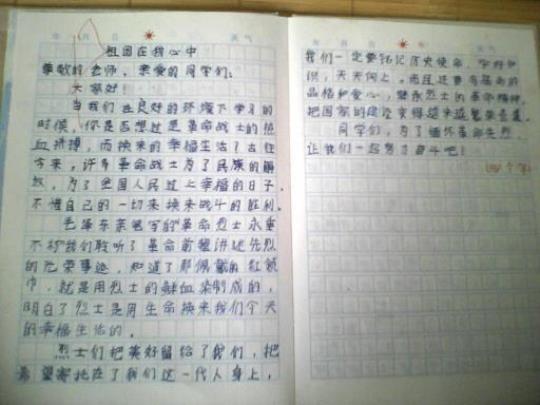 年 月 日 天气
祖国在我心中
尊敬的老师、亲爱的同学们:
大家好!
当我们在良好的环境下学习的
时候,你是否想过是革命战士的热
血拼搏,而换来的幸福生活?古往
今来,许多革命战士为了民族的解
放,为了全国人民过上幸福的日子,
不惜自己的一切来换来战斗的胜利。
毛泽东亲笔写的"革命烈士永垂
不朽"我们聆听了革命前辈讲述先烈
的光荣事迹,知道了那佩戴的红领
巾,就是用烈士的鲜血染制成的,
明白了烈士是用生命换来我们今天
的幸福生活的。
烈士们把美好留给了我们,把
希望寄托在了我们这一代人身上,
年 月 日 天气
我们一定要铭记历史使命,学好知
识,天天向上。而且还要有崇高的
品格和爱心,继承烈士的革命精神,
把国家的建设变得越来越繁荣富强。
同学们,为了缅怀革命先烈,
让我们一起努力奋斗吧!